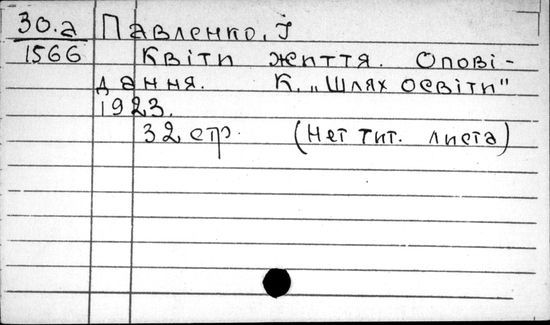 30.а Павленко, І
1566 Квіти життя. Опові-
дання. К. „Шлях освіти"
1923.
32 стр. (Нет тит. листа)